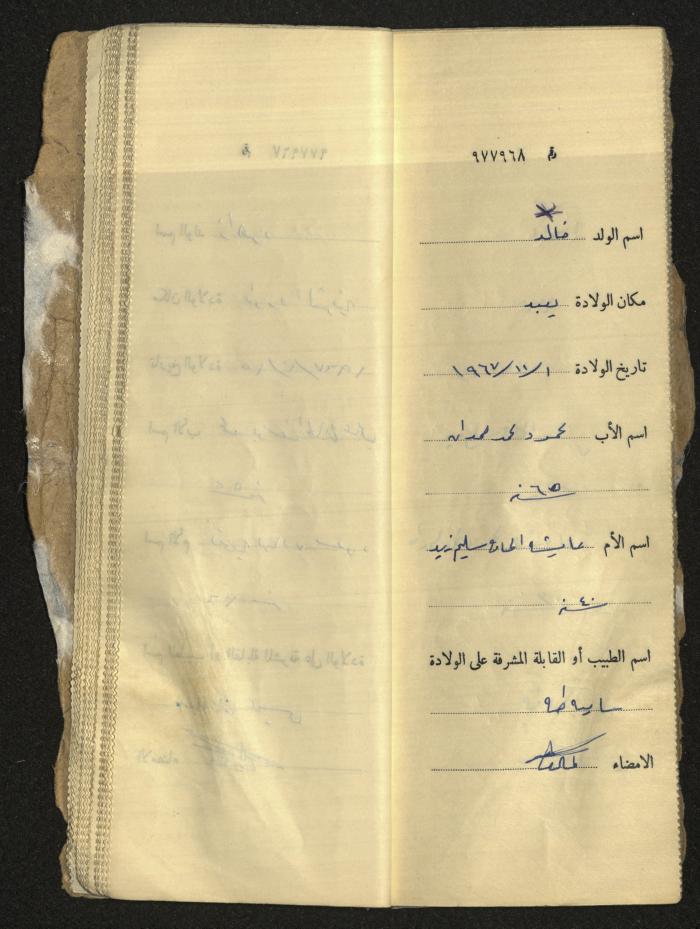 رقم ٩٧٧٩٦٨
اسم الولد خالد
مكان الولادة يعبد
تاريخ الولادة ١/١١/١٩٦٧
اسم الأب محمود محمد حمدان
٦٥ سنة
اسم الأم عايشه الحاج سليم زيد
٤٠ سنة
اسم الطبيب أو القابلة المشرفة على الولادة
طه
الامضاء